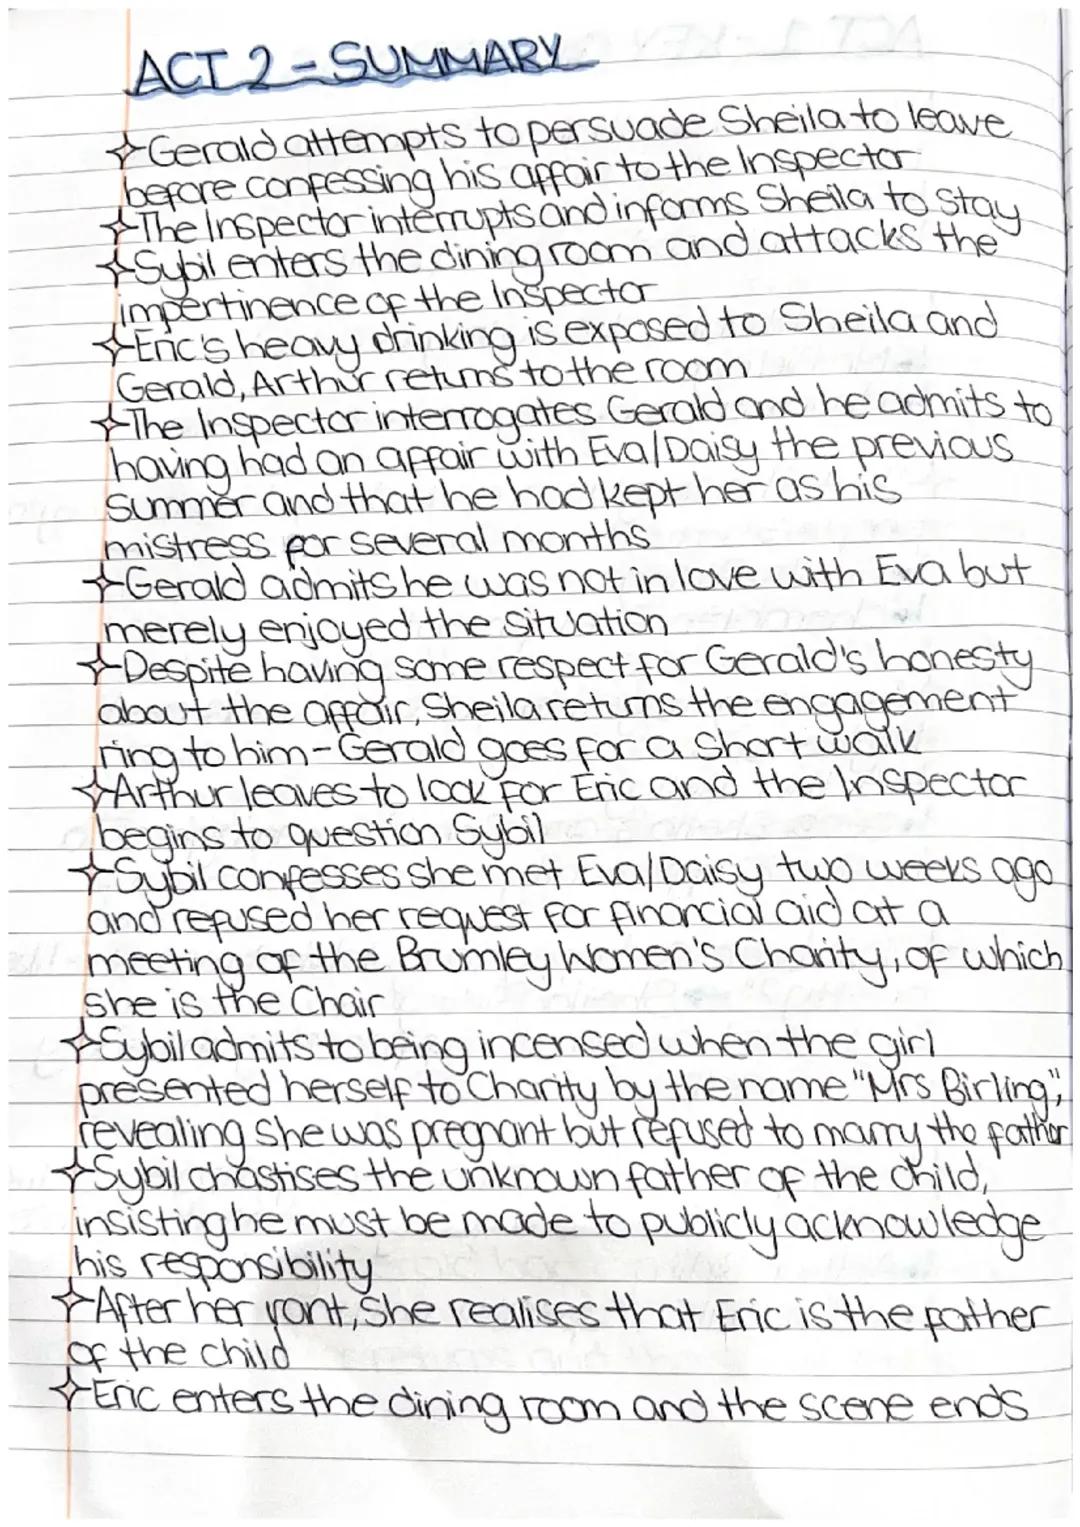 ACT 2 - SUMMARY
✧Gerald attempts to persuade Sheila to leave
before confessing his affair to the Inspector
✧The Inspector interrupts and informs Sheila to stay
✧Sybil enters the dining room and attacks the
impertinence of the Inspector
✧Eric's heavy drinking is exposed to Sheila and
Gerald, Arthur returns to the room
✧The Inspector interrogates Gerald and he admits to
having had an affair with Eva/Daisy the previous
summer and that he had kept her as his
mistress for several months
✧Gerald admits he was not in love with Eva but
merely enjoyed the situation
✧Despite having some respect for Gerald's honesty
about the affair, Sheila returns the engagement
ring to him - Gerald goes for a short walk
✧Arthur leaves to look for Eric and the Inspector
begins to question Sybil
✧Sybil confesses she met Eva/Daisy two weeks ago
and refused her request for financial aid at a
meeting of the Brumley Women's Charity, of which
she is the Chair
✧Sybil admits to being incensed when the girl
presented herself to Charity by the name "Mrs Birling",
revealing she was pregnant but refused to marry the father
✧Sybil chastises the unknown father of the child,
insisting he must be made to publicly acknowledge
his responsibility
✧After her rant, she realises that Eric is the father
of the child
✧Eric enters the dining room and the scene ends